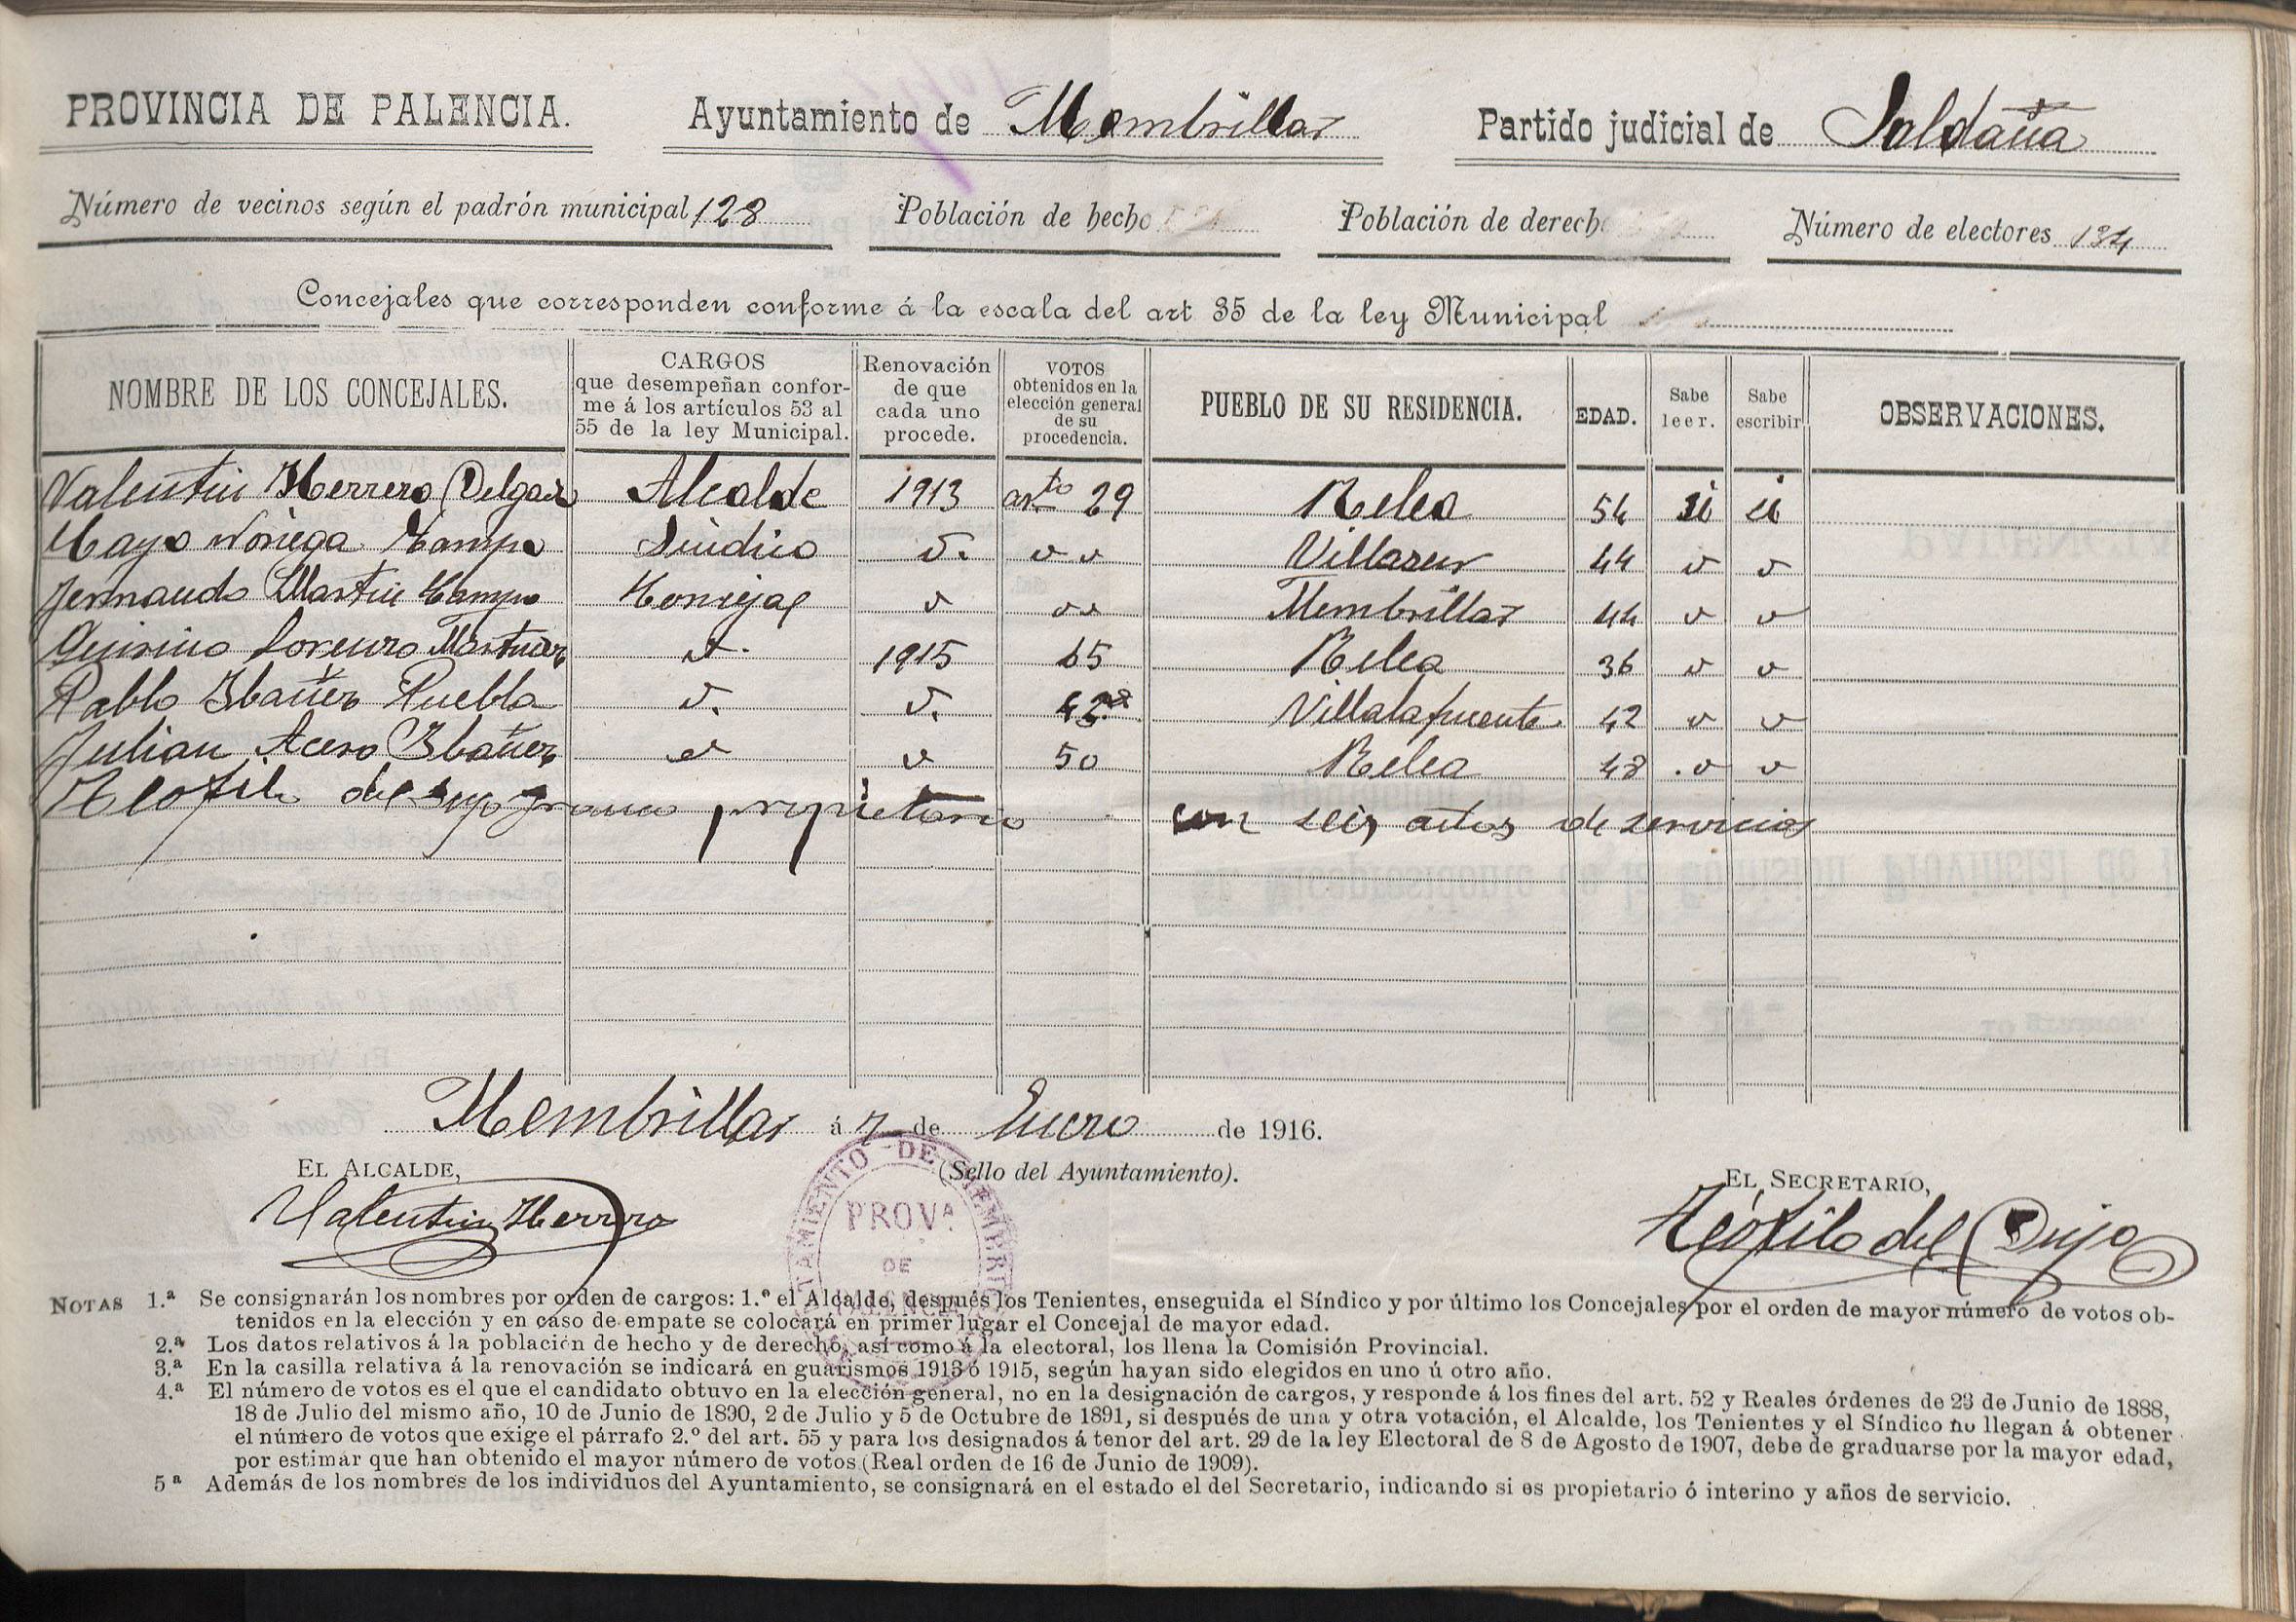 PROVINCIA DE PALENCIA. Ayuntamiento de Membrillar Partido judicial de Saldaña
Número de vecinos según el padrón municipal 128 Población de hecho Población de derecho Número de electores 134
Concejales que corresponden conforme á la escala del art 35 de la ley Municipal
NOMBRE DE LOS CONCEJALES. CARGOS que desempeñan confor- me á los artículos 53 al 55 de la ley Municipal. Renovación de que cada uno procede. VOTOS obtenidos en la elección general de su procedencia. PUEBLO DE SU RESIDENCIA. EDAD. Sabe leer. Sabe escribir OBSERVACIONES.
Valentin Herrero Delgado Alcalde 1913 arto 29 Relea 54 si si
Mayo Noriega Campo Sindico v. v v Villasur 44 v v
Fernando Martin Campo Concejal v v v Membrillar 44 v v
Quirino Lorenzo Martinez v. 1915 65 Relea 36 v v
Pablo Ibañez Puebla v. v. Villalafuente 42 v v
Julian Acero Ibañez v v 50 Relea 48 v v
Teofilo del Dujo Franco propietario con seis años de servicios
Membrillar á 7 de Enero de 1916.
EL ALCALDE, (Sello del Ayuntamiento). EL SECRETARIO,
Valentin Herrero Teófilo del Dujo
AYUNTAMIENTO DE MEMBRILLAR
PROVA
DE
NOTAS 1.ª Se consignarán los nombres por orden de cargos: 1.º el Alcalde, después los Tenientes, enseguida el Síndico y por último los Concejales por el orden de mayor número de votos ob-
tenidos en la elección y en caso de empate se colocará en primer lugar el Concejal de mayor edad.
2.ª Los datos relativos á la población de hecho y de derecho, así como á la electoral, los llena la Comisión Provincial.
3.ª En la casilla relativa á la renovación se indicará en guarismos 1913 ó 1915, según hayan sido elegidos en uno ú otro año.
4.ª El número de votos es el que el candidato obtuvo en la elección general, no en la designación de cargos, y responde á los fines del art. 52 y Reales órdenes de 23 de Junio de 1888,
18 de Julio del mismo año, 10 de Junio de 1890, 2 de Julio y 5 de Octubre de 1891, si después de una y otra votación, el Alcalde, los Tenientes y el Síndico no llegan á obtener
el número de votos que exige el párrafo 2.º del art. 55 y para los designados á tenor del art. 29 de la ley Electoral de 8 de Agosto de 1907, debe de graduarse por la mayor edad,
por estimar que han obtenido el mayor número de votos (Real orden de 16 de Junio de 1909).
5ª Además de los nombres de los individuos del Ayuntamiento, se consignará en el estado el del Secretario, indicando si es propietario ó interino y años de servicio.